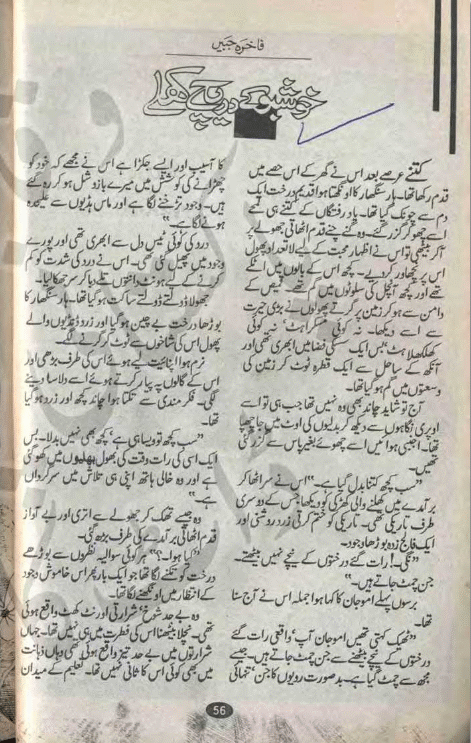 فاخرہ جبیں
خوشبو کے دریچے کھلے
کتنے عرصے بعد اس نے گھر کے اس حصے میں
قدم رکھا تھا۔ ہار سنگھار کا اونگھتا ہوا قدیم درخت ایک
دم سے چونک گیا تھا۔ یاد رفتگاں کے کتنے ہی لمحے
اسے چھو کر گزر گئے۔ وہ گنے چنے قدم اٹھاتی جھولے پر
آکر بیٹھی تو اس نے اظہار محبت کے لیے لاتعداد پھول
اس پر نچھاور کر دیے۔ کچھ اس کے بالوں میں اٹکے
تھے اور کچھ آنچل کی سلوٹوں میں گم تھے۔ قمیص کے
دامن سے ہو کر زمین پر گرتے پھولوں نے بڑی حیرت
سے اسے دیکھا۔ نہ کوئی مسکراہٹ' نہ کوئی
کھلکھلاہٹ' بس ایک سسکی فضا میں ابھری تھی اور
آنکھ کے ساحل سے ایک قطرہ ٹوٹ کر زمین کی
وسعتوں میں گم ہو گیا تھا۔
آج تو شاید چاند بھی وہ نہیں تھا جب ہی تو اسے
اوپری نگاہوں سے دیکھ کر بدلیوں کی اوٹ میں جا چھپا
تھا۔ اجنبی ہوائیں اسے چھوئے بغیر پاس سے گزر گئی
تھیں۔
"سب کچھ کتنا بدل گیا ہے۔" اس نے سر اٹھا کر
برآمدے میں کھلنے والی کھڑکی کو دیکھا جس کے دوسری
طرف تاریکی تھی۔ تاریکی کو ختم کرتی زرد روشنی اور
ایک فالج زدہ بوڑھا وجود۔
"نگی! رات گئے درختوں کے نیچے نہیں بیٹھتے۔
جن چمٹ جاتے ہیں۔"
برسوں پہلے اموجان کا کہا ہوا جملہ اس نے آج سنا
تھا۔
"ٹھیک کہتی تھیں اموجان آپ' واقعی رات گئے
درختوں کے نیچے بیٹھنے سے جن چمٹ جاتے ہیں۔ جیسے
مجھ سے چمٹ گیا ہے۔ بد صورت رویوں کا جن' تنہائی
کا آسیب اور ایسے جکڑا ہے اس نے مجھے کہ خود کو
چھڑانے کی کوشش میں میرے بازو شل ہو کر رہ گئے
ہیں۔ وجود تڑخنے لگا ہے اور ماس ہڈیوں سے علیحدہ
ہونے لگا ہے۔"
درد کی کوئی ٹیس دل سے ابھری تھی اور پورے
وجود میں پھیل گئی تھی۔ اس نے درد کی شدت کو کم
کرنے کے لیے ہونٹ دانتوں تلے دبا کر سر جھکا لیا۔
جھولا ڈولتے ڈولتے ساکت ہو گیا تھا۔ ہار سنگھار کا
بوڑھا درخت بے چین ہو گیا اور زرد ڈنڈیوں والے
پھول اس کی شاخوں سے ٹوٹ کر گرنے لگے۔
نرم ہوا اپنائیت لیے ہوئے اس کی طرف بڑھی اور
اس کے گالوں پہ پیار کرتے ہوئے اسے دلاسا دینے
لگی۔ فکر مندی سے تکتا ہوا چاند کچھ اور زرد ہو گیا
تھا۔
"سب کچھ تو ویسا ہی ہے' کچھ بھی نہیں بدلا۔ بس
ایک اسی کی رات وقت کی بھول بھلیوں میں کھو گئی
ہے اور وہ خالی ہاتھ اپنی ہی تلاش میں سرگرداں
ہے۔"
وہ جیسے تھک کر جھولے سے اتری اور بے آواز
قدم اٹھاتی برآمدے کی طرف بڑھ گئی۔
"کیا ہوا۔؟" ہر کوئی سوالیہ نظروں سے بوڑھے
درخت کو تکنے لگا تھا جو ایک بار پھر اس خاموش وجود
کے انتظار میں اونگھنے لگا تھا۔
وہ بے حد شوخ' شرارتی اور نٹ کھٹ واقع ہوئی
تھی۔ نچلا بیٹھنا اس کی فطرت میں ہی نہیں تھا۔ جہاں
شرارتوں میں بے حد تیز واقع ہوئی تھی وہاں ذہانت
میں بھی کوئی اس کا ثانی نہیں تھا۔ تعلیم کے میدان
56